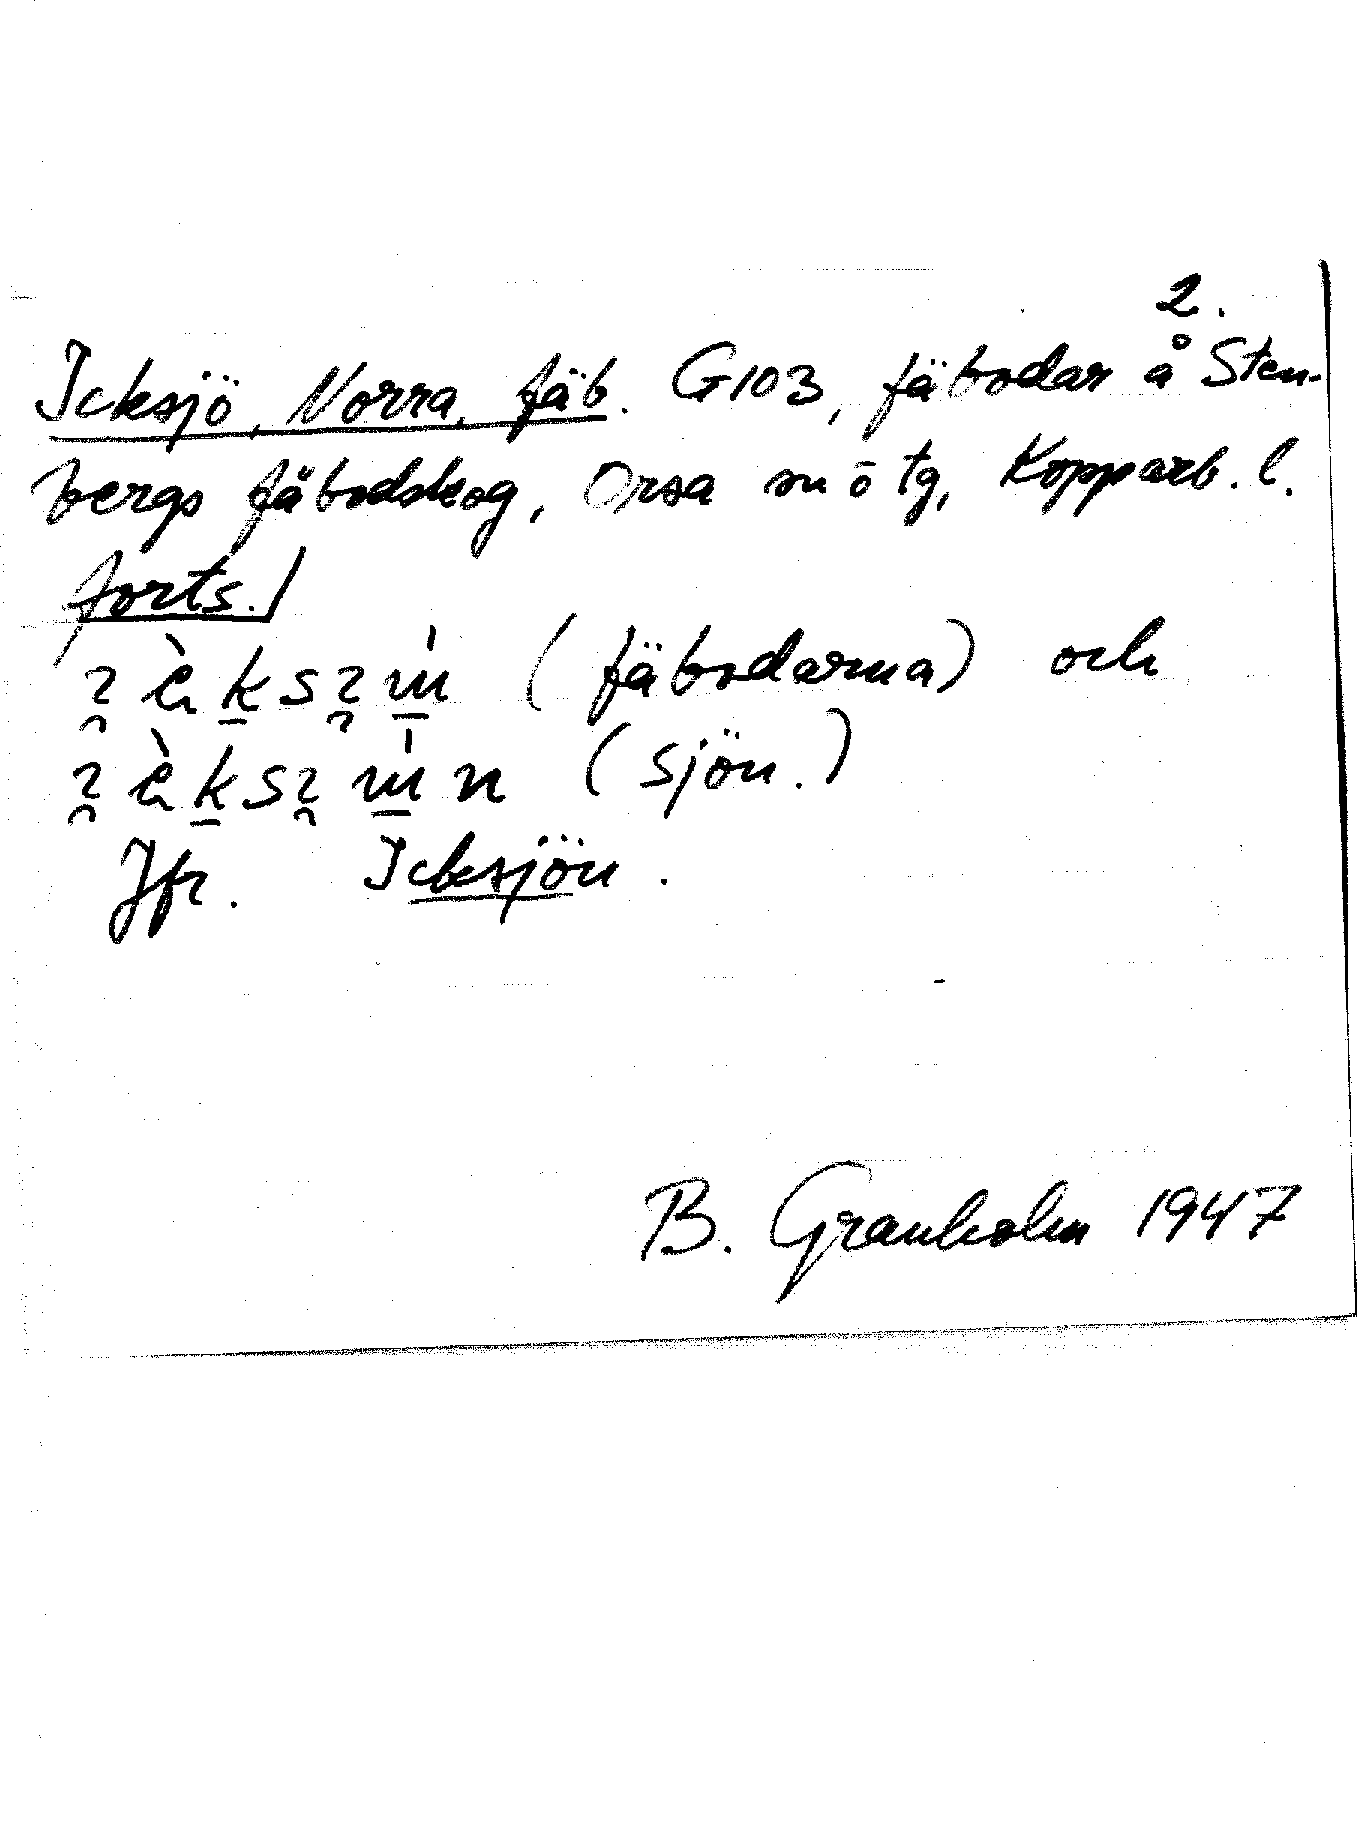 2.
Icksjö, Norra, fäb. G103, fäbodar å Sten-
bergs fäbodskog, Orsa sn ō tg, Kopparb. l.
forts./
(fäbodarna) och
(sjön.)
Jfr. Icksjön.
B. Granholm 1947